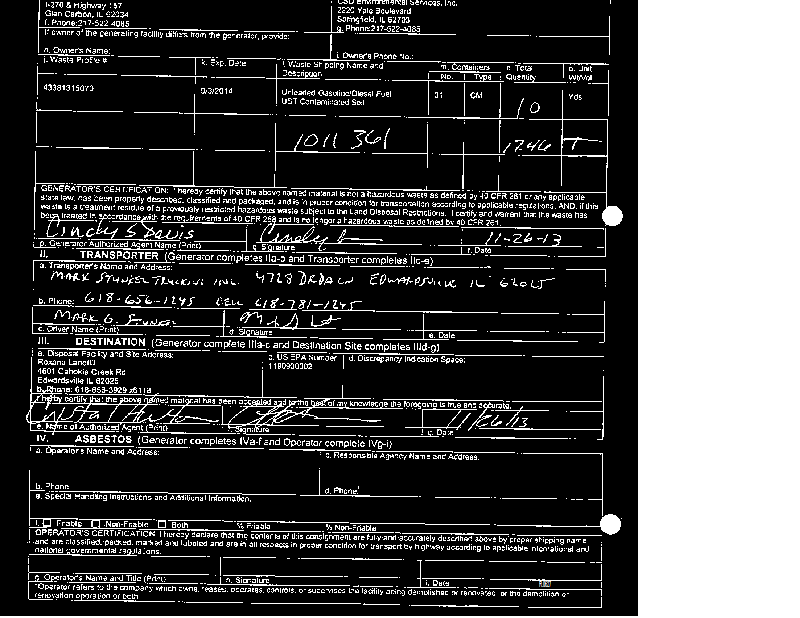 I-270 & Highway 157
Glen Carbon, IL 62034
f. Phone:217-522-4085
CSD Environmental Services, Inc.
2220 Yale Boulevard
Springfield, IL 62703
g. Phone:217-522-4085
If owner of the generating facility differs from the generator, provide:
h. Owner's Name:
i. Owner's Phone No.:
j. Waste Profile #
k. Exp. Date
l. Waste Shipping Name and Description
m. Containers
No.
Type
n. Total Quantity
o. Unit Wt/Vol
9/3/2014
Unleaded Gasoline/Diesel Fuel
UST Contaminated Soil
01
CM
10
Yds
1011 361
17.46
T
GENERATOR'S CERTIFICATION: I hereby certify that the above named material is not a hazardous waste as defined by 40 CFR 261 or any applicable
state law, has been properly described, classified and packaged, and is in proper condition for transportation according to applicable regulations, AND, if this
waste is a treatment residue of a previously restricted hazardous waste subject to the Land Disposal Restrictions. I certify and warrant that the waste has
been treated in accordance with the requirements of 40 CFR 268 and is no longer a hazardous waste as defined by 40 CFR 261.
Cindy S Davis
11-26-13
p. Generator Authorized Agent Name (Print)
q. Signature
r. Date
II. TRANSPORTER (Generator completes IIa-b and Transporter completes IIc-e)
a. Transporter's Name and Address:
MARK STUNKEL TRUCKING INC. 4728 EDWARDSVILLE IL 62025
b. Phone: 618-656-1245 CELL 618-781-1245
MARK G. STUNKEL
c. Driver Name (Print)
d. Signature
e. Date
III. DESTINATION (Generator complete IIIa-c and Destination Site completes IIId-g)
a. Disposal Facility and Site Address:
c. US EPA Number
d. Discrepancy Indication Space:
Roxana Landfill
4601 Cahokia Creek Rd
Edwardsville IL 62025
1190900002
b. Phone: 618-656-3929 x6118
I hereby certify that the above named material has been accepted and to the best of my knowledge the foregoing is true and accurate.
11/26/13
e. Name of Authorized Agent (Print)
f. Signature
g. Date
IV. ASBESTOS (Generator completes IVa-f and Operator complete IVg-i)
a. Operator's Name and Address:
c. Responsible Agency Name and Address:
b. Phone:
d. Phone:
e. Special Handling Instructions and Additional Information:
f. Friable Non-Friable Both % Friable % Non-Friable
OPERATOR'S CERTIFICATION: I hereby declare that the contents of this consignment are fully and accurately described above by proper shipping name
and are classified, packed, marked and labeled and are in all respects in proper condition for transport by highway according to applicable international and
national governmental regulations.
g. Operator's Name and Title (Print)
h. Signature
i. Date
*Operator refers to the company which owns, leases, operates, controls, or supervises the facility being demolished or renovated, or the demolition or
renovation operation or both